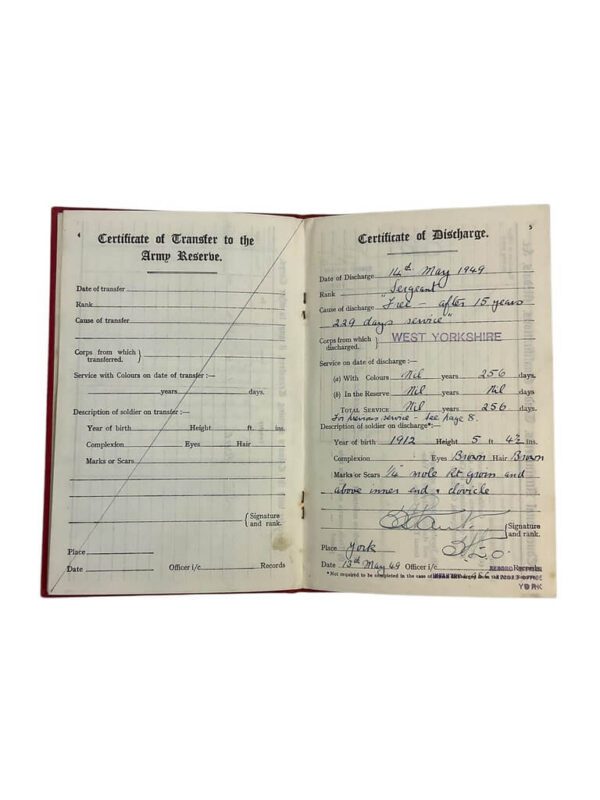 4
Certificate of Transfer to the
Army Reserve.
Date of transfer
Rank
Cause of transfer
Corps from which
transferred.
Service with Colours on date of transfer :—
years days.
Description of soldier on transfer :—
Year of birth Height ft. ins.
Complexion Eyes Hair
Marks or Scars
Signature
and rank.
Place
Date Officer i/c Records
5
Certificate of Discharge.
Date of Discharge 14th May 1949
Rank Sergeant
Cause of discharge "Free - after 15 years
229 days service"
Corps from which
discharged. WEST YORKSHIRE
Service on date of discharge :—
(a) With Colours Nil years 256 days.
(b) In the Reserve Nil years Nil days.
TOTAL SERVICE Nil years 256 days.
For previous service - See page 8.
Description of soldier on discharge* :—
Year of birth 1912 Height 5 ft 4½ ins.
Complexion Eyes Brown Hair Brown
Marks or Scars ¼" mole Rt groin and
above inner end
Signature
and rank.
Place York
Date 12th May 49 Officer i/c Records
*Not required to be completed in the case of
YORK